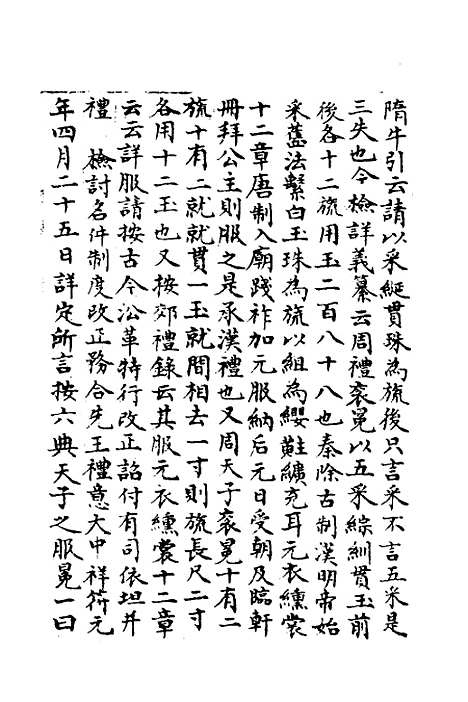 隋牛引云請以采綖貫珠為旒後只言采不言五采是
三失也今檢詳義纂云周禮衮冕以五采綜紃貫玉前
後各十二旒用玉二百八十八也秦除古制漢明帝始
采蓋法繫白玉珠為旒以組為纓黈纊充耳元衣纁裳
十二章唐制入廟踐祚加元服納后元日受朝及臨軒
冊拜公主則服之是承漢禮也又周天子衮冕十有二
旒十有二就就貫一玉就間相去一寸則旒長尺二寸
各用十二玉也又按郊禮錄云其服元衣纁裳十二章
云云詳服請按古今沿革特行改正詔付有司依坦并
禮 檢討名件制度改正務合先王禮意大中祥符元
年四月二十五日詳定所言按六典天子之服冕一曰